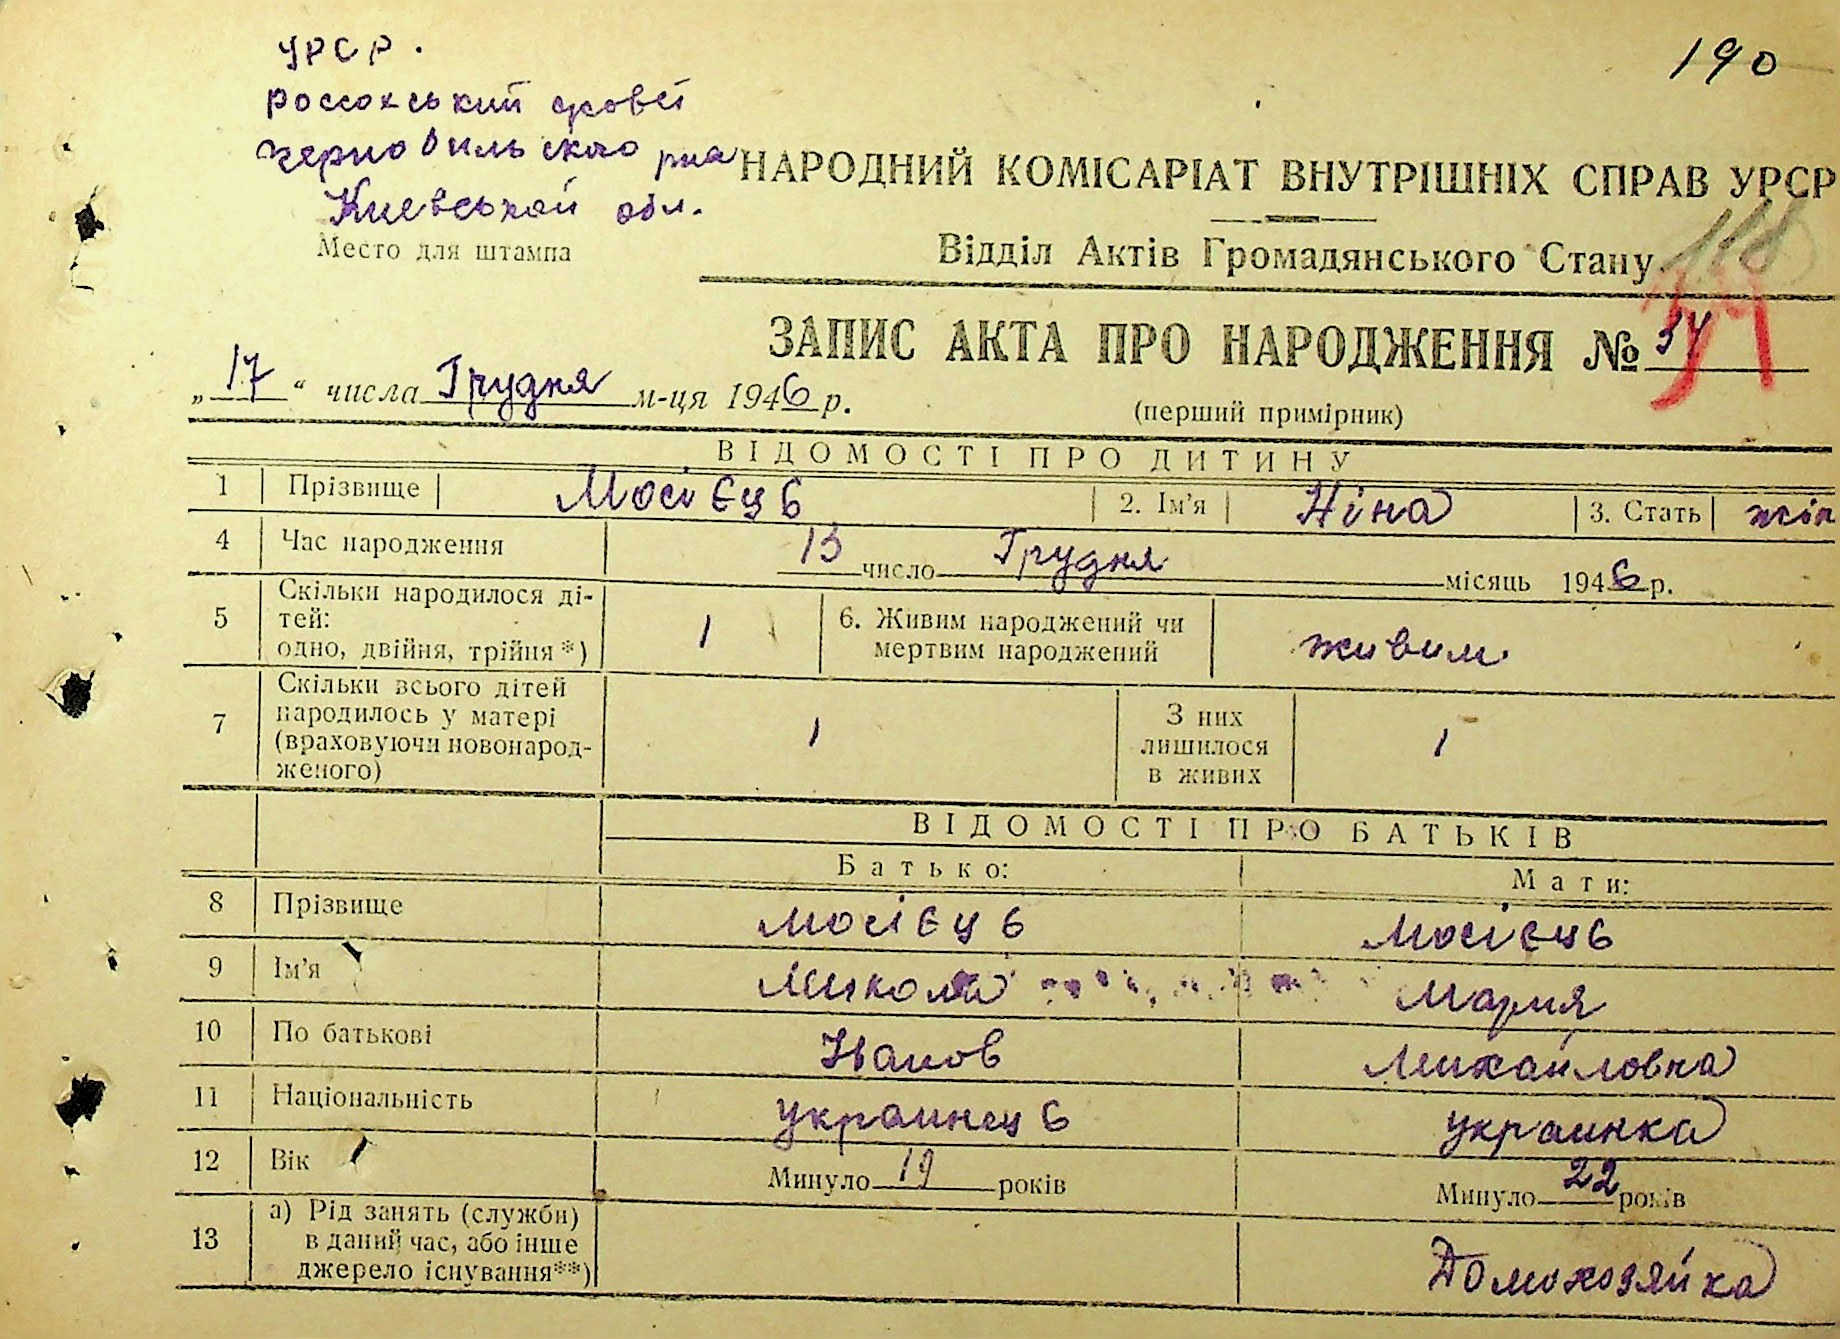 УРСР.
190
Россохський
Чернобильского р-на
Киевськой обл.
НАРОДНИЙ КОМІСАРІАТ ВНУТРІШНІХ СПРАВ УРСР
Место для штампа
Відділ Актів Громадянського Стану
118
ЗАПИС АКТА ПРО НАРОДЖЕННЯ № 34
„17“ числа Грудня м-ця 1946 р.
(перший примірник)
ВІДОМОСТІ ПРО ДИТИНУ
1 Прізвище Мосієць 2. Ім'я Ніна 3. Стать жін
4 Час народження 13 число Грудня місяць 1946 р.
5 Скільки народилося ді-
тей:
одно, двійня, трійня*) 1 6. Живим народжений чи
мертвим народжений живим
7 Скільки всього дітей
народилось у матері
(враховуючи новонарод-
женого) 1 З них
лишилося
в живих 1
ВІДОМОСТІ ПРО БАТЬКІВ
Батько: Мати:
8 Прізвище Мосієць Мосієць
9 Ім'я Микола Мария
10 По батькові Иванов Михайловка
11 Національність украинець украинка
12 Вік Минуло 19 років Минуло 22 років
13 а) Рід занять (служби)
в даний час, або інше
джерело існування**) Домохозяйка